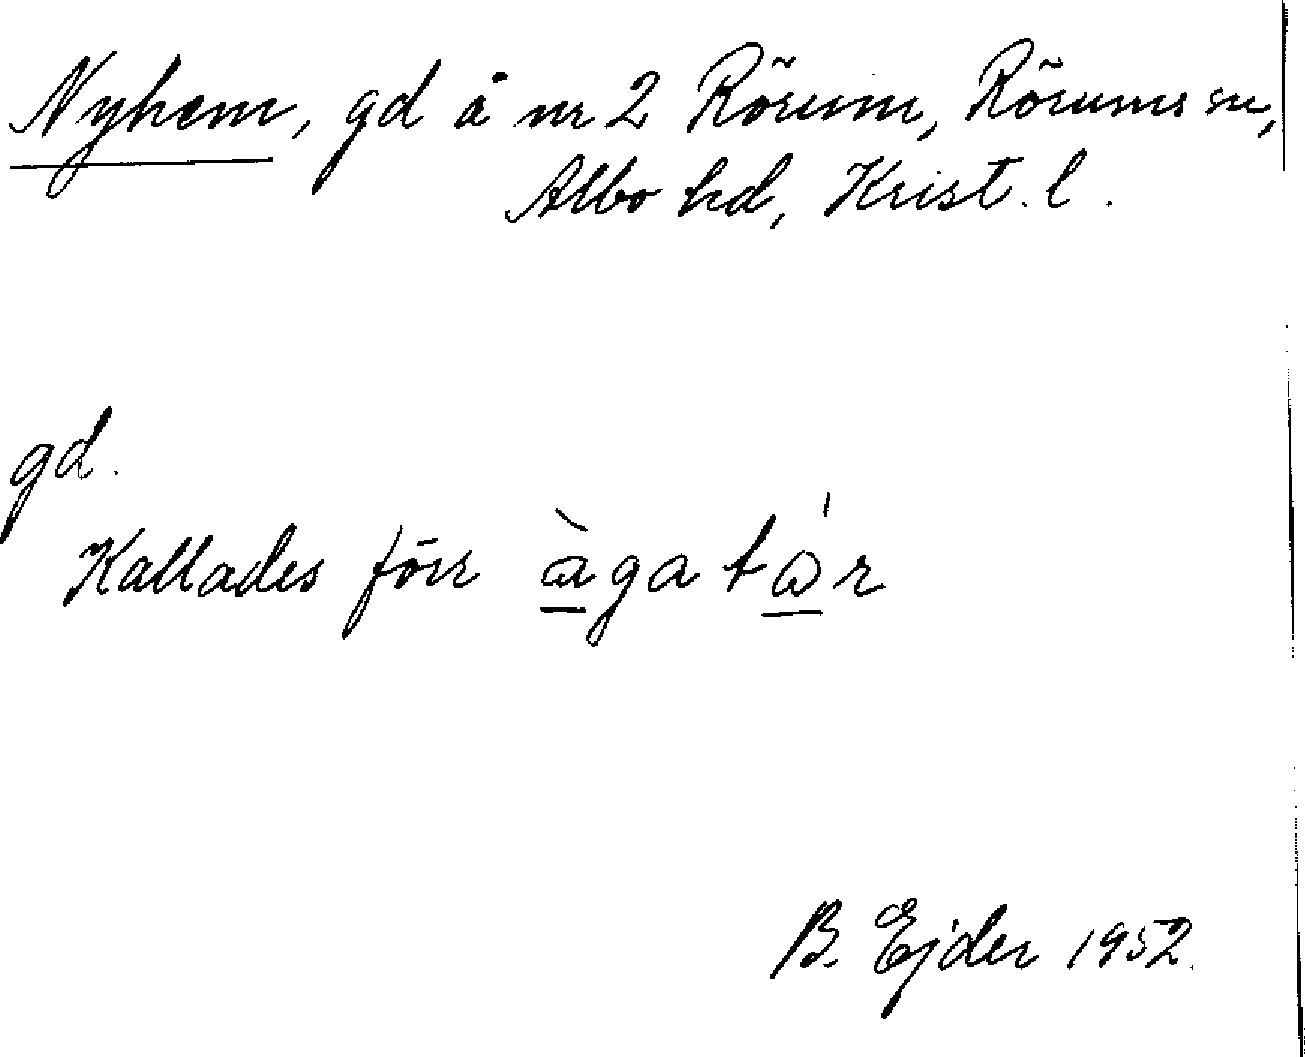 Nyhem, gd å nr 2 Rörum, Rörums sn,
Albo hd, Krist. l.
gd.
Kallades förr àgatár
B. Ejder 1952.